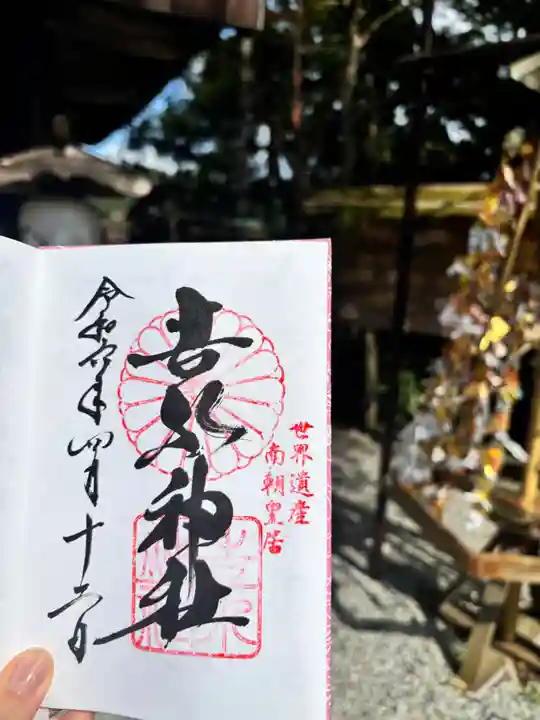 世界遺産
南朝皇居
吉水神社
令和六年四月十六日